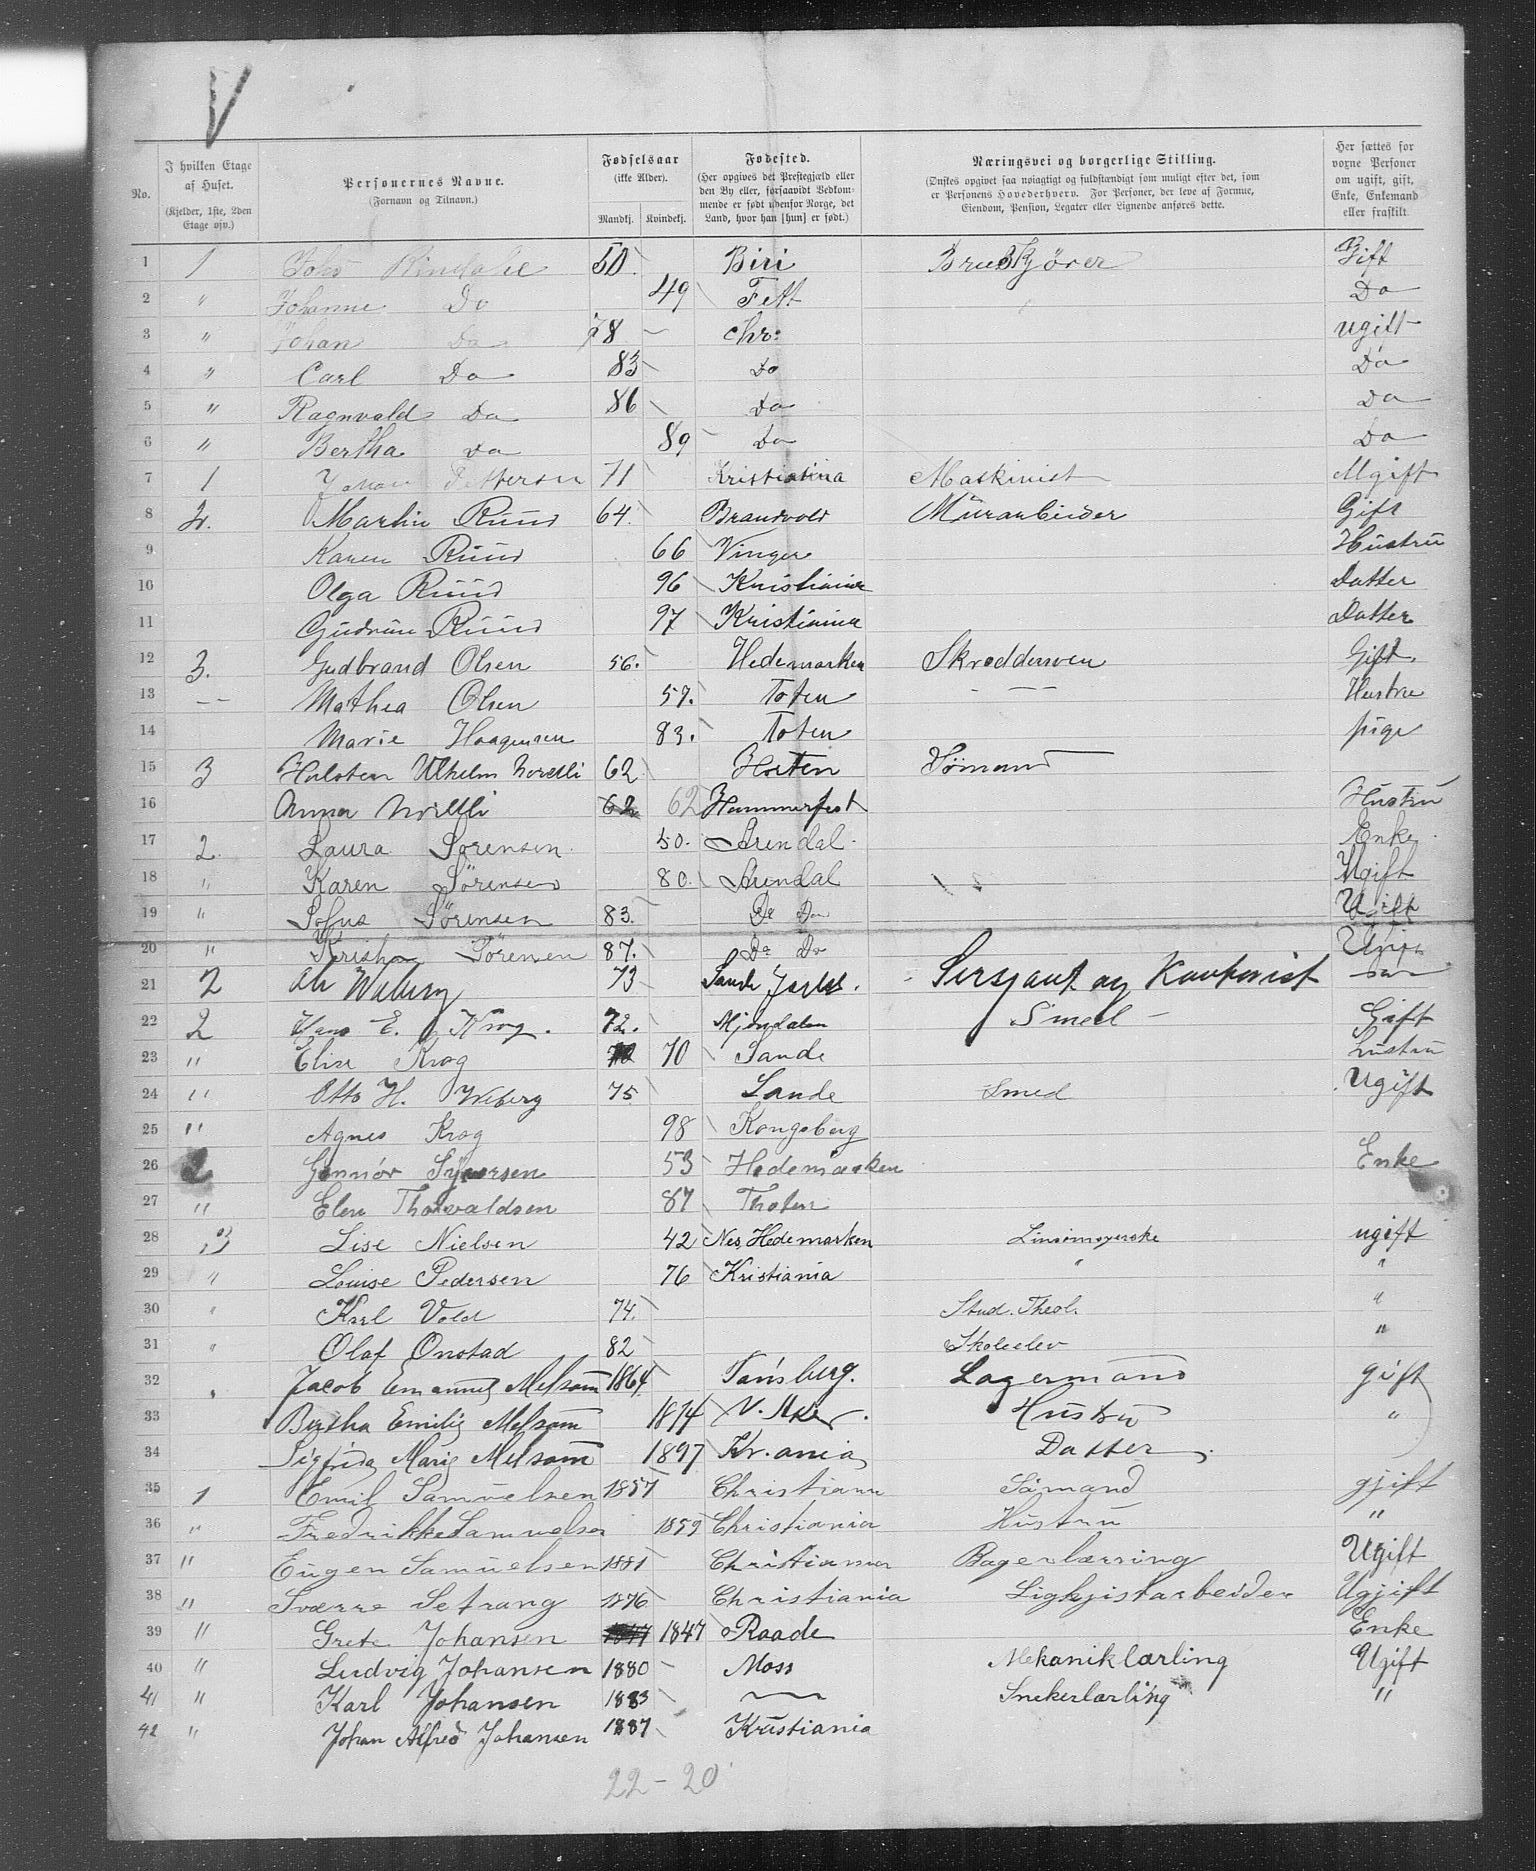 V
No.
I hvilken Etage af Huset. (Kjelder, 1ste, 2den Etage osv.)
Personernes Navne. (Fornavn og Tilnavn.)
Fødselsaar (ikke Alder). Mandkj. Kvindekj.
Fødested. (Her opgives det Prestegjæld eller den By eller, forsaavidt Vedkommende er født udenfor Norge, det Land, hvor han [hun] er født.)
Næringsvei og borgerlige Stilling. (Ønskes opgivet saa nøiagtigt og fuldstændigt som muligt efter det, som er Personens Hovederhverv. For Personer, der leve af Formue, Eiendom, Pension, Legater eller Lignende anføres dette.)
Her sættes for voxne Personer om ugift, gift, Enke, Enkemand eller fraskilt.
1 1 50 Biri Gift
2 " Johanne Do 49 Do
3 " Johan Do 78 Chr: ugift
4 " Carl Do 83 Do Do
5 " Ragnvald Do 86 Do Do
6 " Bertha Do 89 Do Do
7 1 Johan Pettersen 71 Kristiania Maskinist Ugift
8 2. Martin Ruud 64. Brandvold Murarbeider Gift
9 Karen Ruud 66 Vinger Hustru
10 Olga Ruud 96 Kristiania Datter
11 Gudrun Ruud 97 Kristiania Datter
12 3. Gudbrand Olsen 56. Hedemarken Skreddersven Gift
13 -- Mathea Olsen 57. Toten - -- Hustru
14 Marie Haagensen 83. Toten pige
15 3 62 Horten Sömand
16 Anna 62 62 Hammerfest Hustru
17 2. Laura Sørensen 50. Arendal Enke
18 " Karen Sørensen 80. Arendal Ugift
19 " Sofus Sørensen 83. Do Do Ugift
20 " Sörensen 87. Do Do Ugift
21 2 73 Sande Jarlsb. Sersjant og Do
22 2 Hans E. Krog. 72. Mjøndalen Smed Gift
23 " Elise Krog 70 Sande Hustru
24 " Otto H. Wiberg 75 Sande Smed Ugift
25 " Agnes Krog 98 Kongsberg
26 2 Gunnör Syversen 53 Hedemarken Enke
27 " Elen Thorvaldsen 87 Thoten
28 3 Lise Nielsen 42 Nes, Hedemarken Linsömmerske ugift
29 " Louise Pedersen 76 Kristiania " "
30 " Karl Vold 74. Stud. Theol. "
31 " Olaf Onstad 82 Skoleelev "
32 " Jacob Emanuel Melsom 1864 Tønsberg. Lagermand gift
33 Bertha Emilie Melsom 1874 V. Aker. Hustru "
34 Sigfrida Marie Melsom 1897 Kr.ania Datter.
35 1 Emil Samuelsen 1857 Christiania Sömand gjift
36 " Fredrikke Samuelsen 1859 Christiania Hustru "
37 " Eugen Samuelsen 1881 Christiania Bagerlærring Ugift
38 " Sværre Setrang 1876 Christiania Ugjift
39 " Grete Johansen 1847 1847 Raade Enke
40 " Ludvig Johansen 1880 Moss Mekaniklærling Ugift
41 " Karl Johansen 1883 Snekerlærling "
42 " Johan Alfred Johansen 1887 Kristiania
22 - 20